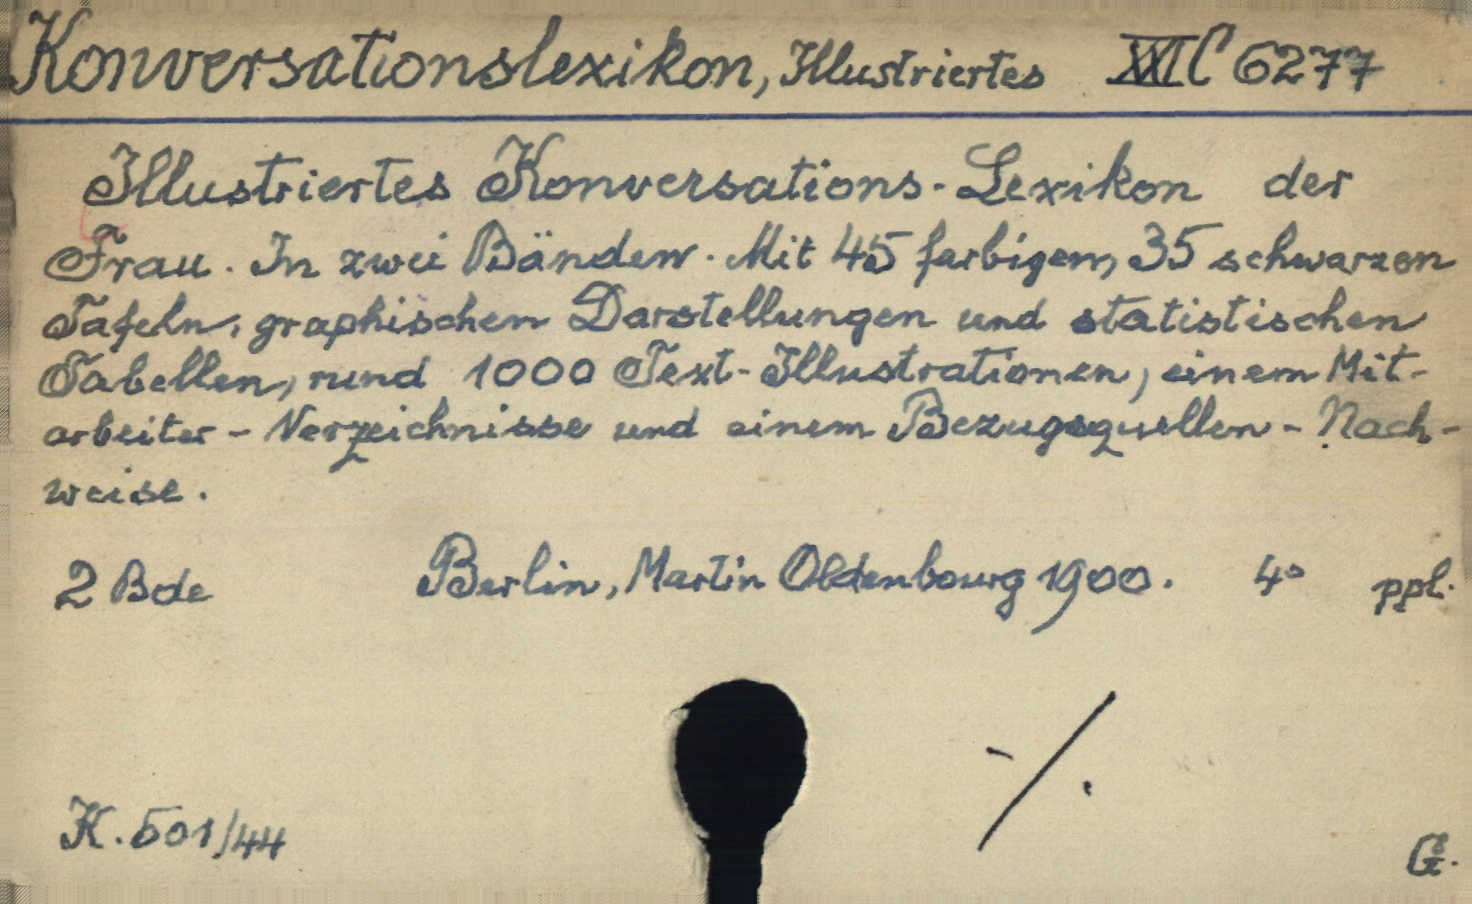 Konversationslexikon, Illustriertes XXI C 6277
Illustriertes Konversations-Lexikon der
Frau. In zwei Bänden. Mit 45 farbigen, 35 schwarzen
Tafeln, graphischen Darstellungen und statistischen
Tabellen, rund 1000 Text-Illustrationen, einem Mit-
arbeiter-Verzeichnisse und einem Bezugsquellen-Nach-
weise.
2 Bde Berlin, Martin Oldenbourg 1900. 4° ppl.
K. 501/44